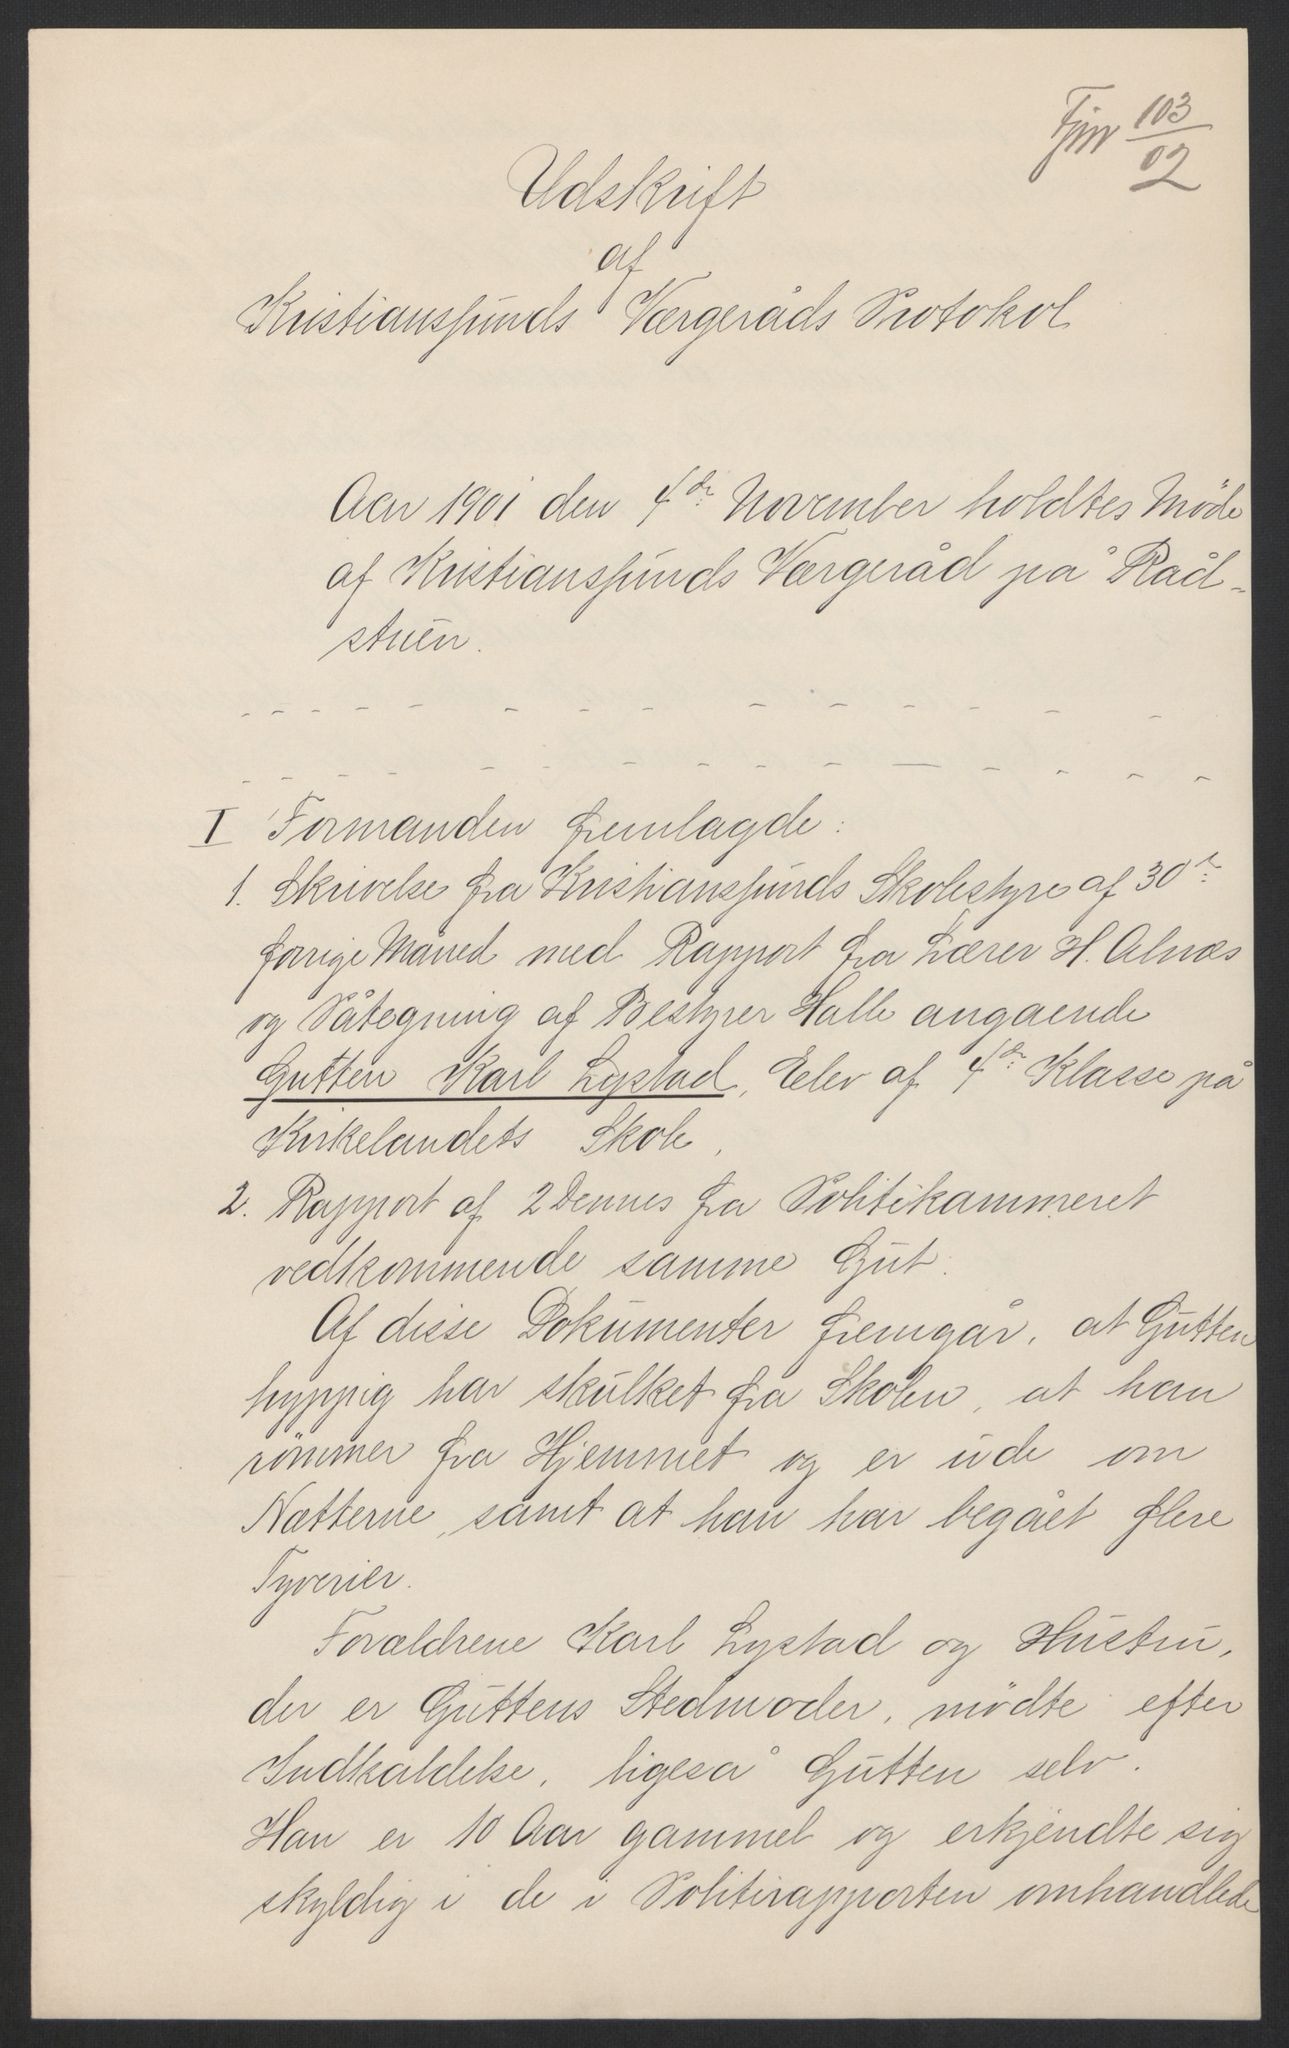 Fjm 103/02
Udskrift
af
Kristianssunds Værgeråds Protokol
Aar 1901 den 4de November holdtes Møde
af Kristianssunds Værgeråd på Råd-
stuen.
I Formanden fremlagde:
1. Skrivelse fra Kristianssunds Skolestyre af 30te
forrige Måned med Rapport fra Lærer H. Alnæs
og Påtegning af Bestyrer Halle angaaende
Gutten Karl Lystad, Elev af 4de Klasse på
Kirkelandets Skole.
2. Rapport af 2 Dennes fra Politikammeret
vedkommende samme Gut.
Af disse Dokumenter fremgår, at Gutten
hyppig har skulket fra Skolen, at han
rømmer fra Hjemmet og er ude om
Nætterne, samt at han har begået flere
Tyverier.
Forældrene Karl Lystad og Hustru,
der er Guttens Stedmoder, mødte efter
Indkaldelse, ligeså Gutten selv.
Han er 10 Aar gammel og erkjendte sig
skyldig i de i Politirapporten omhandlede